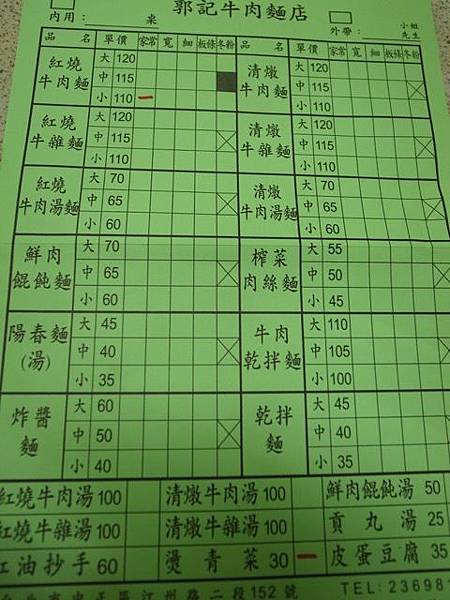 郭記牛肉麵店
內用： 桌 外帶： 小姐 先生
品名 單價 家常 寬 細 板條 冬粉 品名 單價 家常 寬 細 板條 冬粉
紅燒牛肉麵 大 120 中 115 小 110 清燉牛肉麵 大 120 中 115 小 110
紅燒牛雜麵 大 120 中 115 小 110 清燉牛雜麵 大 120 中 115 小 110
紅燒牛肉湯麵 大 70 中 65 小 60 清燉牛肉湯麵 大 70 中 65 小 60
鮮肉餛飩麵 大 70 中 65 小 60 榨菜肉絲麵 大 55 中 50 小 45
陽春麵(湯) 大 45 中 40 小 35 牛肉乾拌麵 大 110 中 105 小 100
炸醬麵 大 60 中 50 小 40 乾拌麵 大 45 中 40 小 35
紅燒牛肉湯 100 清燉牛肉湯 100 鮮肉餛飩湯 50
紅燒牛雜湯 100 清燉牛雜湯 100 貢丸湯 25
紅油抄手 60 燙青菜 30 皮蛋豆腐 35
汀州路二段152號 TEL: 236981